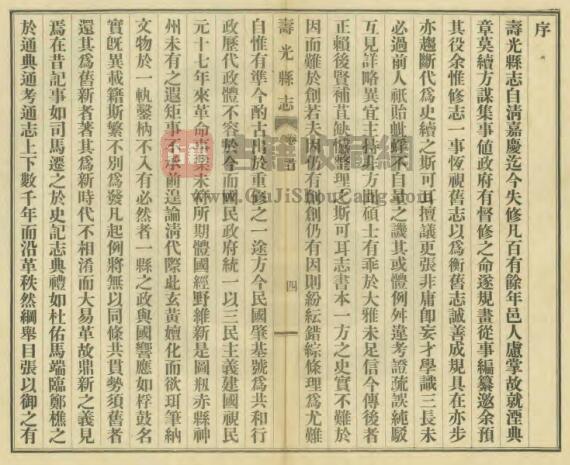 序
壽光縣志自清嘉慶迄今失修凡百有餘年邑人慮掌故就湮典
章莫續方謀集事値政府有督修之命遂規畫從事編纂邀余預
其役余惟修志一事恆視舊志以爲衡舊志誠善成規具在亦步
亦趨斷代爲史續之斯可耳擅議更張非庸卽妄才學識三長未
必過前人祇貽蚍蜉不自量之譏其或體例舛違考證疏誤純駁
互見詳略異宜主持 方聞碩士有乖於大雅未足信今傳後者
正賴後賢補苴缺 整理之斯可耳志書本一方之史實不難於
因而難於創若夫因仍有創創仍有因則紛紜錯綜條理爲尤難
壽光縣志
四
自惟有準今酌古出於重修之一途方今民國肇基號爲共和行
政歷代政體不容於今而國民政府統一以三民主義建國視民
元十七年來革命事業未 所期體國經野維新是圖瓶赤縣神
州未有之遐矩事不 前遑論清代際此玄黃嬗化而欲珥筆納
文物於一軌鑿枘不入有必然者一縣之政與國響應如桴鼓名
實旣異載籍斯繁不別爲發凡起例將無以同條共貫勢須舊者
還其爲舊新者著其爲新時代不相淆而大易革故鼎新之義見
焉在昔記事如司馬遷之於史記志典禮如杜佑馬端臨鄭樵之
於通典通考通志上下數千年而沿革秩然綱舉目張以御之有
古籍
古籍收藏網
www.GuJiShouCang.com